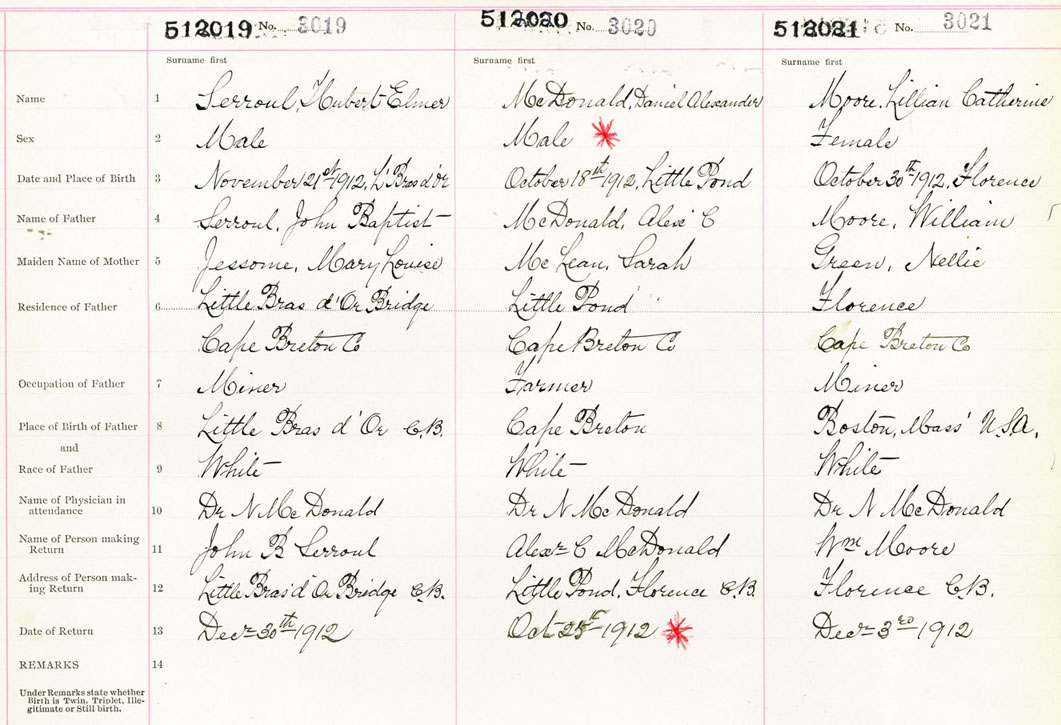 512019 No. 3019 512020 No. 3020 512021 No. 3021
Surname first Surname first Surname first
Name 1 Serroul, Hubert Elmer McDonald, Daniel Alexander Moore, Lillian Catherine
Sex 2 Male Male Female
Date and Place of Birth 3 November 21st 1912, L' Bras d'Or October 18th 1912, Little Pond October 30th 1912, Florence
Name of Father 4 Serroul, John Baptist McDonald, Alex C Moore, William
Maiden Name of Mother 5 Jessome, Mary Louise McLean, Sarah Green, Nellie
Residence of Father 6 Little Bras d'Or Bridge Little Pond Florence
Cape Breton Co Cape Breton Co Cape Breton Co
Occupation of Father 7 Miner Farmer Miner
Place of Birth of Father 8 Little Bras d'Or C.B. Cape Breton Boston, Mass' U.S.A.
and
Race of Father 9 White White White
Name of Physician in
attendance 10 Dr N McDonald Dr N McDonald Dr N McDonald
Name of Person making
Return 11 John B Serroul Alexr C McDonald Wm Moore
Address of Person mak-
ing Return 12 Little Bras d'Or Bridge C.B. Little Pond, Florence C.B. Florence C.B.
Date of Return 13 Decr 30th 1912 Oct 1912 Decr 3rd 1912
REMARKS 14
Under Remarks state whether
Birth is Twin, Triplet, Ille-
gitimate or Still-birth.